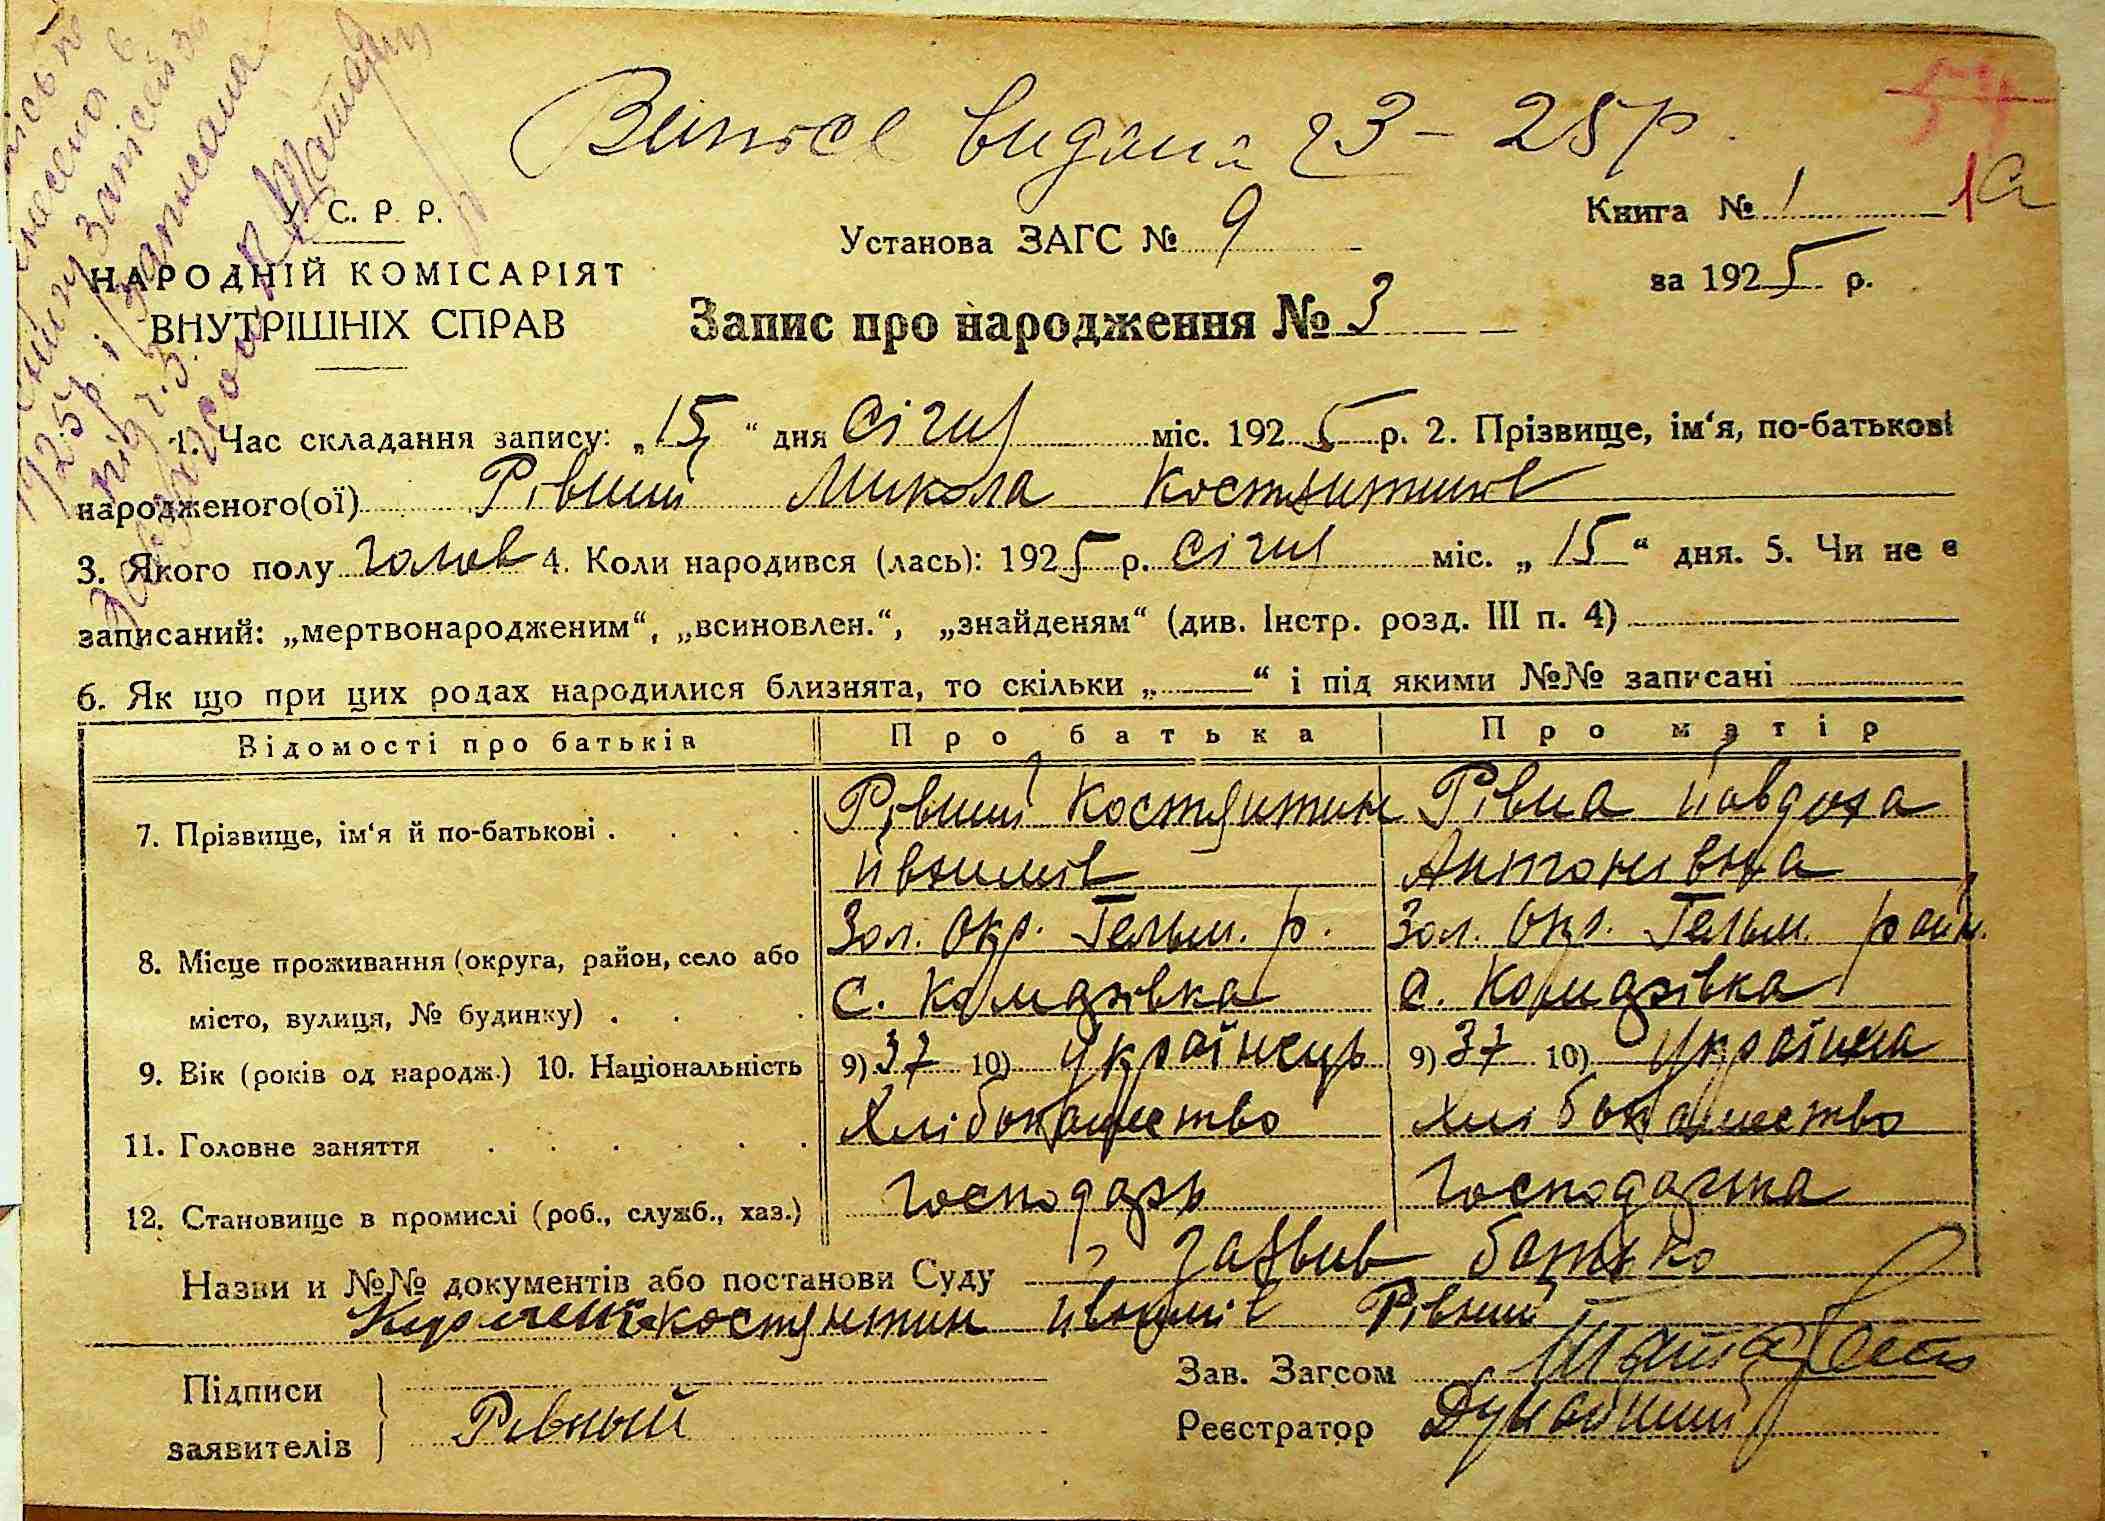 видана 23 - 25 р.
У. С. Р. Р.
НАРОДНІЙ КОМІСАРІЯТ
ВНУТРІШНІХ СПРАВ
Установа ЗАГС № 9
Запис про народження № 3
Книга № 1
1а
за 1925 р.
1. Час складання запису: „15“ дня Січня міс. 1925 р. 2. Прізвище, ім‘я, по-батькові
народженого(ої) Рівний Микола Костянтинов
3. Якого полу чолов 4. Коли народився (лась): 1925 р. Січня міс. „15“ дня. 5. Чи не є
записаний: „мертвонародженим“, „всиновлен.“, „знайденям“ (див. Інстр. розд. III п. 4)
6. Як що при цих родах народилися близнята, то скільки „—“ і під якими №№ записані
Відомості про батьків Про батька Про матір
7. Прізвище, ім‘я й по-батькові . Рівний Костянтин Рівна Йовдоха
Антонивна
Зол. Окр. Гельм. р. Зол. Окр. Гельм. район.
8. Місце проживання (округа, район, село або
місто, вулиця, № будинку) . с. Комарівка с. Комарівка
9. Вік (років од народж.) 10. Національність 9) 37 10) Українець 9) 37 10) Українка
11. Головне заняття Хлібопашество Хлібопашество
12. Становище в промислі (роб., служб., хаз.) Господарь Господарка
Назви и №№ документів або постанови Суду Заявив батько
Костянтин Рівний
Підписи
заявителів
Рівный
Зав. Загсом
Реєстратор Дунайний